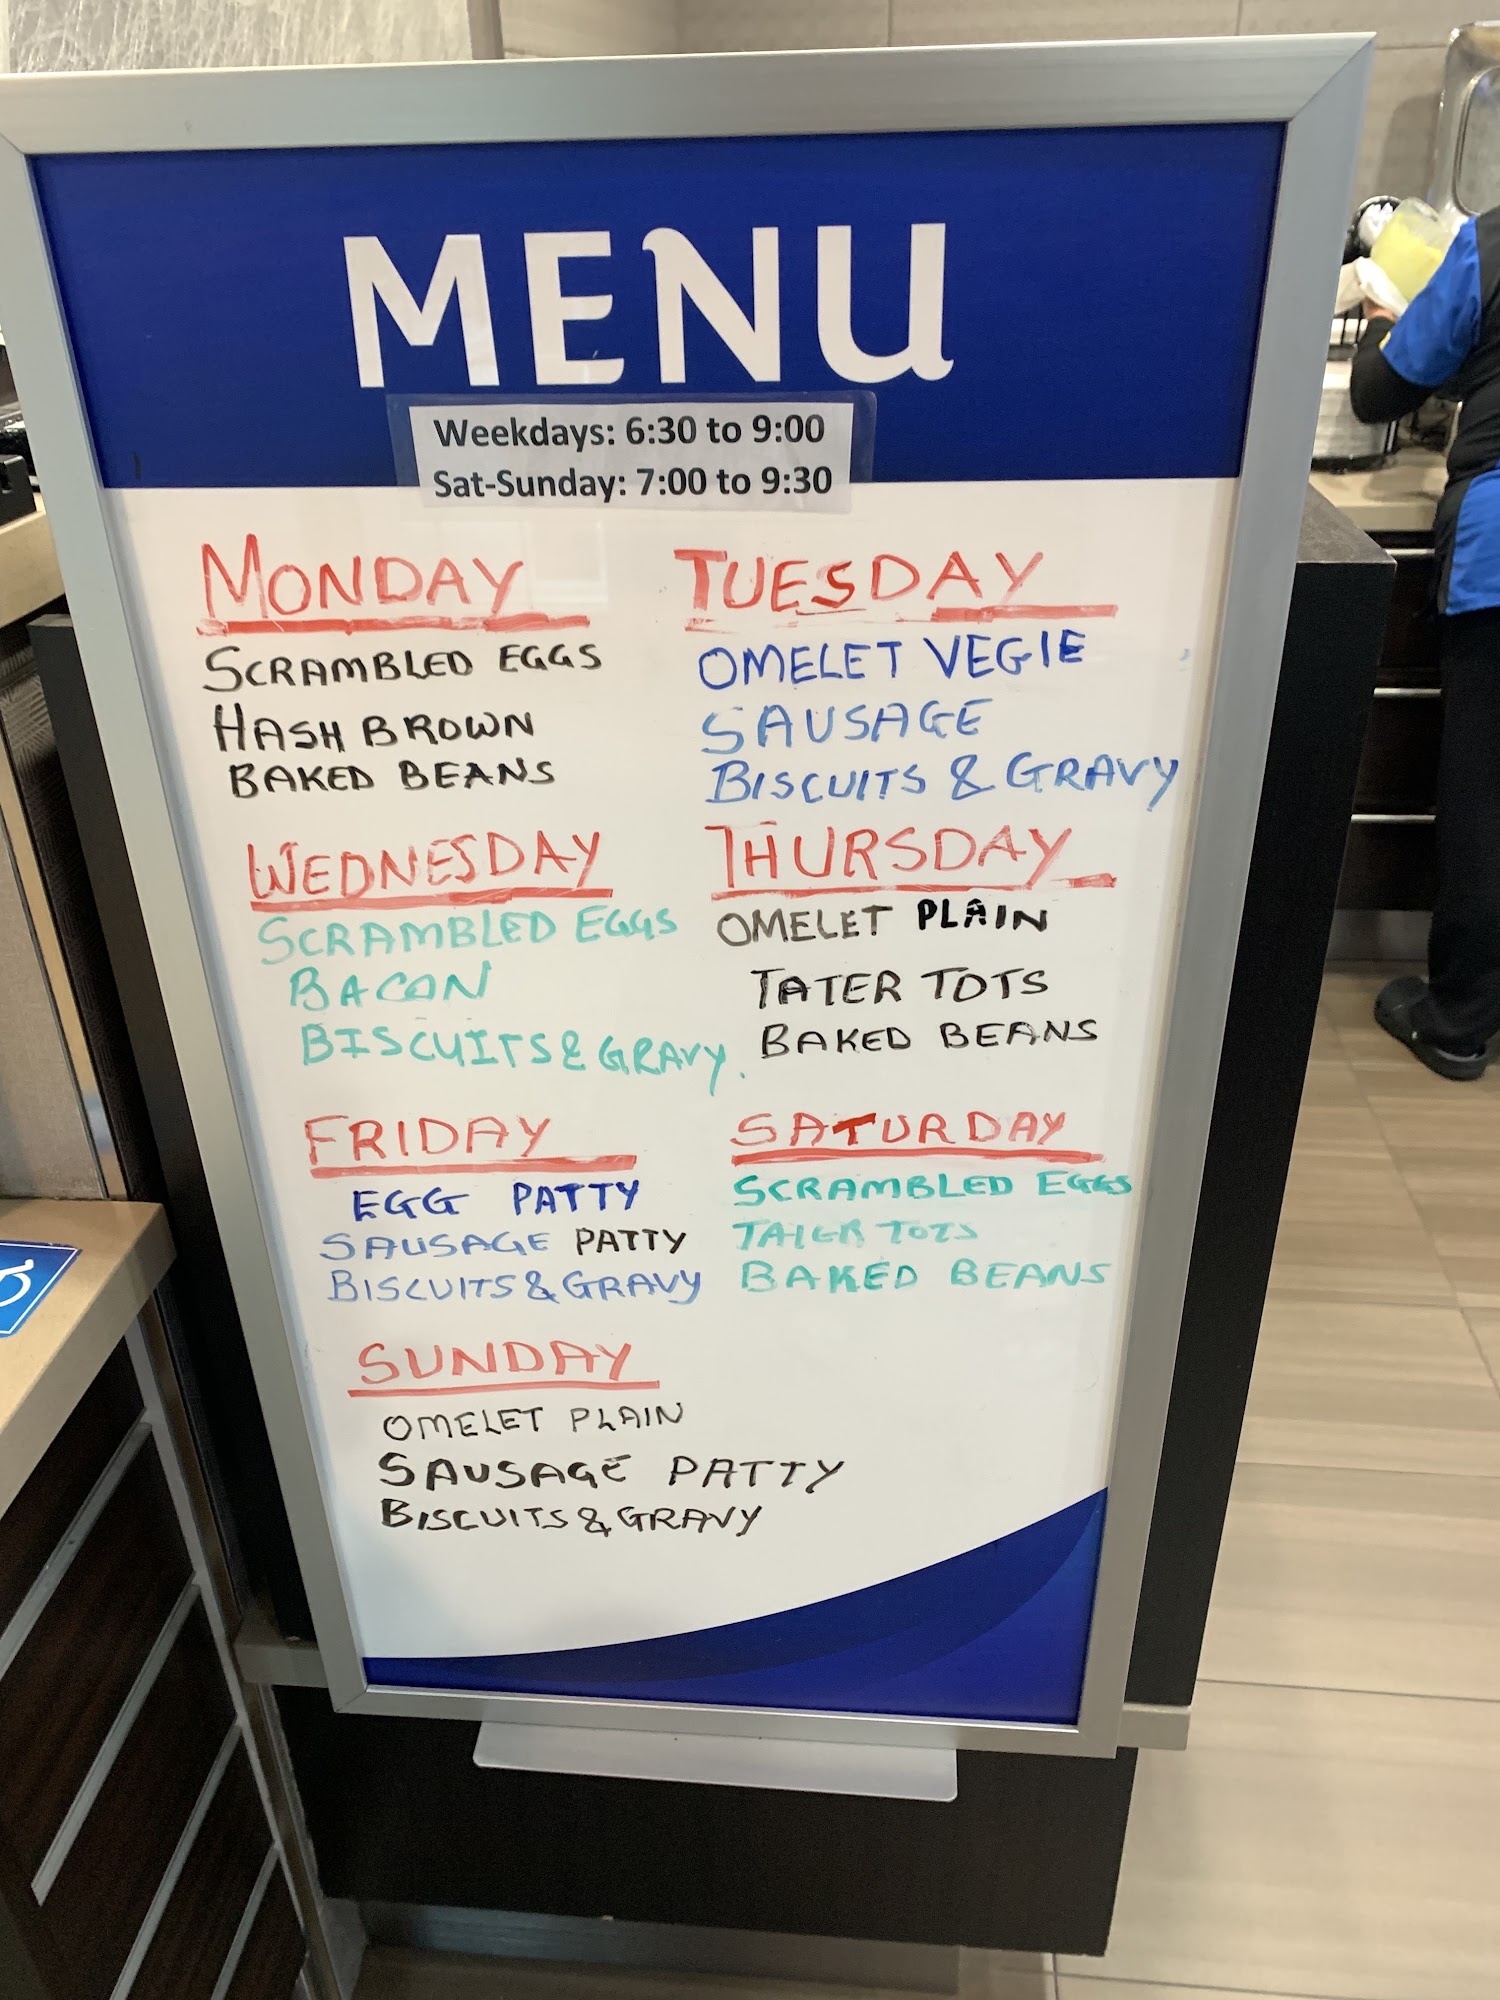 MENU
Weekdays: 6:30 to 9:00
Sat-Sunday: 7:00 to 9:30
MONDAY
SCRAMBLED EGGS
HASH BROWN
BAKED BEANS
TUESDAY
OMELET VEGIE
SAUSAGE
BISCUITS & GRAVY
WEDNESDAY
SCRAMBLED EGGS
BACON
BISCUITS & GRAVY.
THURSDAY
OMELET PLAIN
TATER TOTS
BAKED BEANS
FRIDAY
EGG PATTY
SAUSAGE PATTY
BISCUITS & GRAVY
SATURDAY
SCRAMBLED EGGS
TATER TOTS
BAKED BEANS
SUNDAY
OMELET PLAIN
SAUSAGE PATTY
BISCUITS & GRAVY